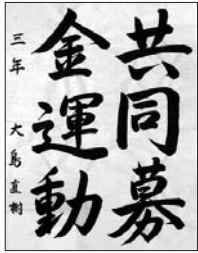 共同募
金運動
三年 大島直樹